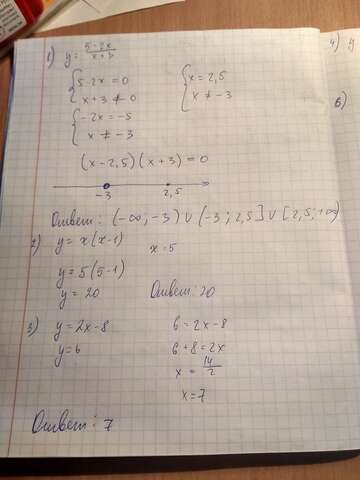 1) y = 5-2x / x+3
{ 5-2x = 0
x+3 ≠ 0
{ x = 2,5
x ≠ -3
{ -2x = -5
x ≠ -3
(x-2,5)(x+3) = 0
-3 2,5
Ответ: (-∞; -3) ∪ (-3; 2,5] ∪ [2,5; +∞)
2) y = x(x-1) x = 5
y = 5(5-1)
y = 20 Ответ: 20
3) y = 2x-8
y = 6
6 = 2x-8
6+8 = 2x
x = 14/2
x = 7
Ответ: 7
4) y
6)